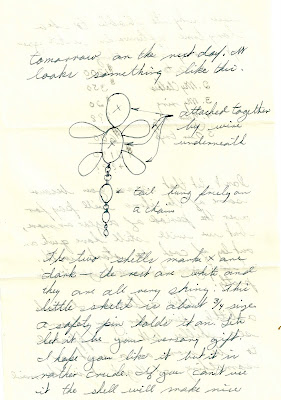 tomorrow on the next day. It
looks something like this.
attached together
by wire
underneath
X
X
tail hung freely on
a chain
The two shells mark x are
dark — the rest are white and
they are all very shiny. This
little sketch is about 3/4 size
a safety pin holds it on. Lin
let it be your anniversary gift.
I hope you like it but it is
rather crude. If you can't use
it the shell will make nice